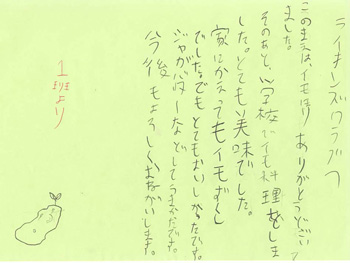 ライオンズクラブへ
このまえは、イモほりありがとうござい
ました。
そのあと、学校でイモ料理をしま
した。とても美味でした。
家にかえってもイモずくし
でした。でもとてもおいしかったです。
ジャガバターなどしてうまかたです。
今後もよろしくおねがいします。
1班より